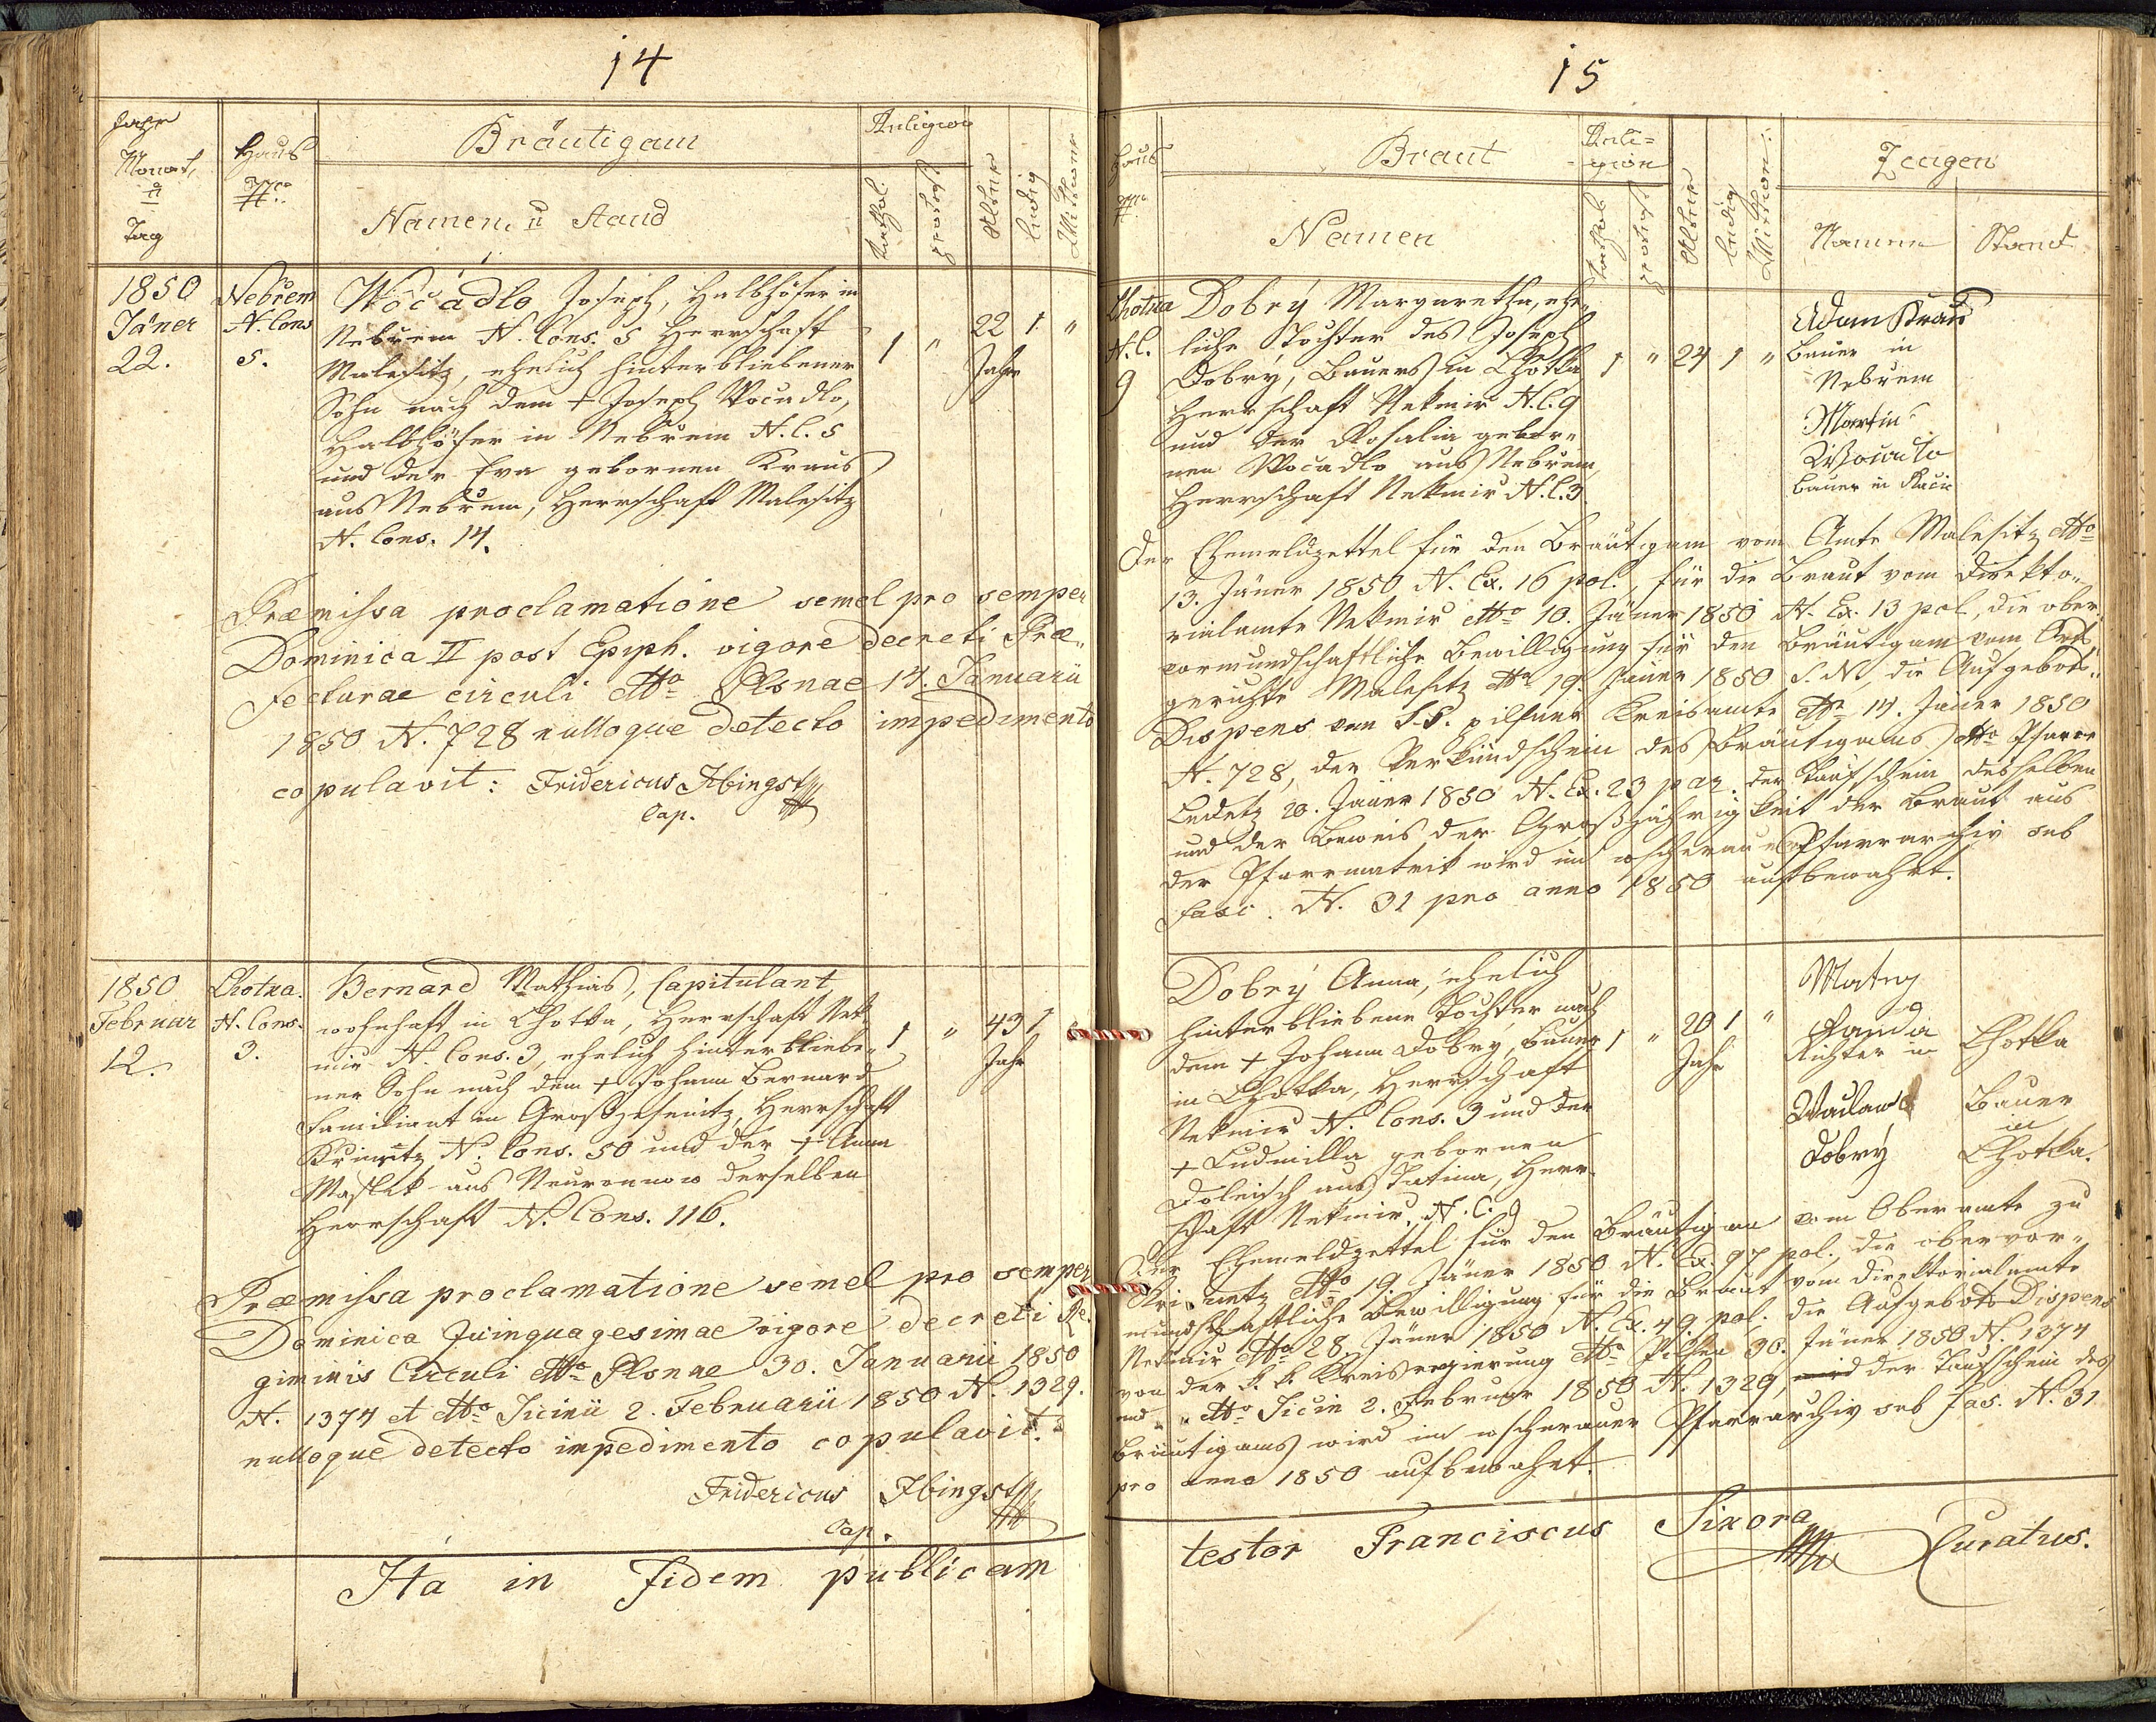 14
Jahr
Monat,
u
Tag
Haus
Nro
Bräutigam
Namen, u Stand
Religion
kathol.
protest
Alter
ledig
Wittwer
1850
Jäner
22.
Nebřem
N. Cons
5.
Wočadlo Joseph, Halbhöfer in
Nebřem N. Cons. 5 Herrschaft
Malesitz, ehelich hinterbliebener
Sohn nach dem + Joseph Wocadlo,
Halbhöfer in Nebřem N. C. 5
und der Eva gebornen Kraus
aus Nebřem, Herrschaft Malesitz
N. Cons. 14.
1 " 22 1 "
Jahre
Præmissa proclamatione semel pro semper
Dominica II post Epiph. vigore decreti Præ„
fecturae circuli dtto Plsnae 14. Januarii
1850 N. 728 nulloque detecto impedimento
copulavit: Fridericus Hbingst
Cap.
1850
Februar
12.
Lhotka.
N. Cons.
3.
Bernard Mathias, Capitulant,
wohnhaft in Lhotka, Herrschaft Nek„
mir N. Cons. 3, ehelich hinterbliebe„
ner Sohn nach dem + Johann Bernard
Familiant in Großjesenitz, Herrschaft
N. Cons. 50 und der + Anna
Maschek aus derselben
Herrschaft N. Cons. 116.
1 " 43 1
Jahr
Præmissa proclamatione semel pro semper
Dominica Quinquagesimae vigore decreti Re„
giminis Circuli dtto Plsnae 30. Januarii 1850
N. 1374 et dtto Jicinii 2. Februarii 1850 N. 1329.
nulloque detecto impedimento copulavit.
Fridericus Hbingst
Cap.
Ita in Fidem publicam
15
Haus
Nro
Braut
Namen
Reli=
gion
kathol.
protest
Alter
ledig
Wittwe
Zeugen
Namen Stand
Lhotka
N. C.
9
Dobrý Margaretha, ehe„
liche Tochter des Joseph
Dobrý, Bauers in Lhotka
Herrschaft Nekmir N. C. 9
und der Rosalia gebor„
nen Wocadlo aus Nebřem,
Herrschaft Nekmir N. C. 3
1 " 24 1 "
Adam Kraus
Bauer in
Nebřem
Martin
Bauer in
Der Ehemeldzettel für den Bräutigam vom Amte Malesitz dtto
13. Jäner 1850 N. Ex. 16 pol., für die Braut vom Direkto„
rialamte Nekmir dtto 10. Jäner 1850 N. Ex. 13 pol, die ober„
vormundschaftliche Bewilligung für den Bräutigam vom Orts„
gerichte Malesitz dtto 19. Jäner 1850 S. N., die Aufgebots„
Dispens vom k.k. pilsner Kreisamte dtto 14. Jäner 1850
N. 728, der Verkündschein des Bräutigams dtto Pfarre
Ledetz 20. Jäner 1850 N. Ex. 23 par. der Taufschein desselben
und der Beweis der Großjährigkeit der Braut aus
der Pfarrmatrik wird im wscherauer Pfarrarchiv sub
Fasc. N. 31 pro anno 1850 aufbewahrt.
Dobrý Anna, ehelich
hinterbliebene Tochter nach
dem + Johann Dobrý, Bauer
in Lhotka, Herrschaft
Nekmir N. Cons. 3 und der
+ Ludmilla gebornen
Doleisch aus Tatina, Herr„
schaft Nekmir, N. C. 9
1 " 20 1 "
Jahr
Matěj
Panda
Richter in Lhotka
Waclaw
Dobrý
Bauer
in
Lhotka.
Der Ehemeldzettel für den Bräutigam vom Oberamte zu
dtto 19. Jäner 1850 N. Ex. 97 pol., die obervor„
mundschaftliche Bewilligung für die Braut vom Direktorialamte
Nekmir dtto 28. Jäner 1850 N. Ex. 49 pol., die Aufgebots Dispens
von der k. k. Kreisregierung dtto Pilsen 30. Jäner 1850 N. 1374
und " " dtto Jicin 2. Februar 1850 N. 1329, der Taufschein des
Bräutigams wird im wscherauer Pfarrarchiv sub fas. N. 31
pro anno 1850 aufbewahrt.
testor Franciscus Sixora
Curatus.